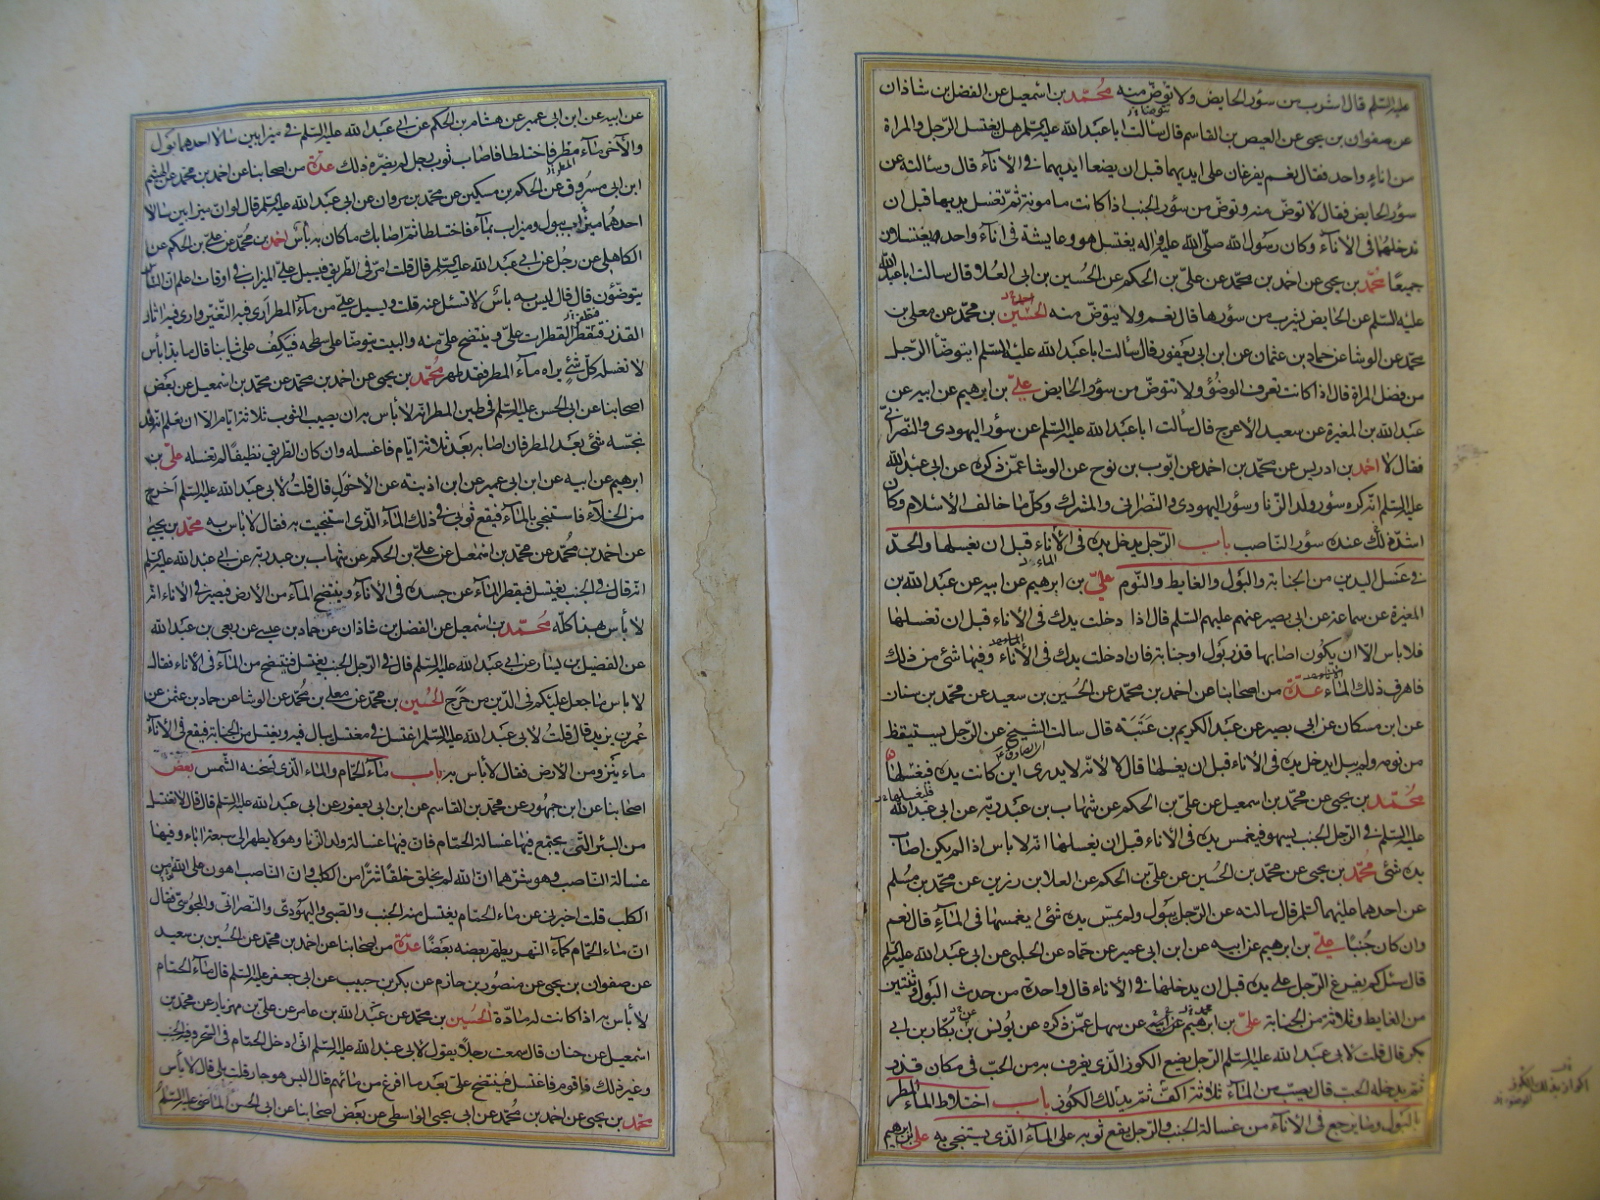 عليه السلم قال اشرب من سؤر الحايض ولا توضّ منه محمّد بن اسمعيل عن الفضل بن شاذان
عن صفوان بن يحيى عن العيص بن القاسم قال سالت ابا عبد الله عليه السلم هل يغتسل الرجل والمراة
من اناء واحد فقال نعم يفرغان على ايديهما قبل ان يضعا ايديهما في الاناء قال وسالته عن
سؤر الحايض فقال لا توضّ منه وتوضّ من سؤر الجنب اذا كانت مامونة ثم تغسل يديها قبل ان
تدخلهما في الاناء وكان رسول الله صلّى الله عليه واله يغتسل هو وعايشة في اناء واحد ويغتسلون
جميعًا محمّد بن يحيى عن احمد بن محمّد عن عليّ بن الحكم عن الحسين بن ابي العلاء قال سالت ابا عبد الله
عليه السلم عن الحايض يشرب من سؤرها قال نعم ولا يتوضّ منه الحسين بن محمّد عن معلى بن
محمّد عن الوشا عن حماد بن عثمان عن ابن ابي يعفور قال سالت ابا عبد الله عليه السلم ايتوضّا الرجل
من فضل المراة قال اذا كانت تعرف الوضوء ولا تتوضّ من سؤر الحايض عليّ بن ابرهيم عن ابيه عن
عبد الله بن المغيرة عن سعيد الاعرج قال سالت ابا عبد الله عليه السلم عن سؤر اليهودي والنصراني
فقال لا احمد بن ادريس عن محمّد بن احمد عن ايّوب بن نوح عن الوشا عمّن ذكره عن ابي عبد الله
عليه السلم انه كره سؤر ولد الزنا وسؤر اليهودي والنصراني والمشرك وكلّ ما خالف الاسلام وكان
اشدّ ذلك عنده سؤر الناصب باب الرجل يدخل يده في الاناء قبل ان يغسلها والحدّ
في غسل اليدين من الجنابة والبول والغايط والنوم عليّ بن ابرهيم عن ابيه عن عبد الله بن
المغيرة عن سماعة عن ابي بصير عنهم عليهم السلم قال اذا دخلت يدك في الاناء قبل ان تغسلها
فلا باس الا ان يكون اصابها قذر بول او جنابة فان دخلت يدك في الاناء وفيها شئ من ذلك
فاهرق ذلك الماء عدّة من اصحابنا عن احمد بن محمّد عن الحسين بن سعيد عن محمّد بن سنان
عن ابن مسكان عن ابي بصير عن عبد الكريم بن عتبة قال سالت الشيخ عن الرجل يستيقظ
من نومه ولم يبل ايدخل يده في الاناء قبل ان يغسلها قال لا لانه لا يدري اين كانت يده فيغسلها
محمّد بن يحيى عن محمّد بن اسمعيل عن عليّ بن الحكم عن شهاب بن عبد ربّه عن ابي عبد الله
عليه السلم في الرجل الجنب يسهو فيغمس يده في الاناء قبل ان يغسلها انه لا باس اذا لم يكن اصاب
يده شئ محمّد بن يحيى عن محمّد بن الحسين عن عليّ بن الحكم عن العلا بن رزين عن محمّد بن مسلم
عن احدهما عليهما السلم قال سالته عن الرجل يبول ولم يمسّ يده شئ ايغمسها في الماء قال نعم
وان كان جنبًا عليّ بن ابرهيم عن ابيه عن ابن ابي عمير عن حماد عن الحلبي عن ابي عبد الله عليه السلم
قال سئل كم يفرغ الرجل على يده قبل ان يدخلها في الاناء قال واحدة من حدث البول وثنتين
من الغايط وثلاثة من الجنابة عليّ بن محمد عن سهل عمّن ذكره عن يونس عن بكار بن ابي
بكر قال قلت لابي عبد الله عليه السلم الرجل يضع الكوز الذي يغرف به من الحبّ في مكان قذر
ثم يدخله الحب قال يصبّ من الماء ثلاثة اكفّ ثم يدلك الكوز باب اختلاط الماء المطر
بالبول وما يرجع في الاناء من غسالة الجنب والرجل يقع ثوبه على الماء الذي يستنجي به عليّ بن ابرهيم
عن ابيه عن ابن ابي عمير عن هشام بن الحكم عن ابي عبد الله عليه السلم في ميزابين سالا احدهما بول
والآخر ماء مطر فاختلطا فاصاب ثوب رجل لم يضره ذلك عدّة من اصحابنا عن احمد بن محمد عن الهيثم
ابن ابي مسروق عن الحكم بن مسكين عن محمد بن مروان عن ابي عبد الله عليه السلم قال لو ان ميزابين سالا
احدهما ميزاب ببول وميزاب بماء فاختلطا ثم اصابك ما كان به باس احمد بن محمد عن عليّ بن الحكم عن
الكاهلي عن رجل عن ابي عبد الله عليه السلم قال قلت امرّ في الطريق فيسيل عليّ الميزاب في اوقات اعلم ان الناس
يتوضّؤن قال قال ليس به باس لا تسئل عنه قلت ويسيل عليّ من ماء المطر ارى فيه التغيّر وارى فيه اثار
القذر فتقطر القطرات عليّ وينتضح عليّ منه والبيت يتوضّا على سطحه فيكف على ثيابنا قال ما بذا باس
لا تغسله كلّ شئ يراه ماء المطر فقد طهر محمّد بن يحيى عن احمد بن محمّد عن محمّد بن اسمعيل عن بعض
اصحابنا عن ابي الحسن عليه السلم في طين المطر انه لا باس به ان يصيب الثوب ثلاثة ايام الا ان يعلم انه قد
نجّسه شئ بعد المطر فان اصابه بعد ثلاثة ايّام فاغسله وان كان الطريق نظيفًا لم تغسله عليّ بن
ابرهيم عن ابيه عن ابن ابي عمير عن ابن اذينة عن الاحول قال قلت لابي عبد الله عليه السلم اخرج
من الخلاء فاستنجي بالماء فيقع ثوبي في ذلك الماء الذي استنجيت به فقال لا باس به محمّد بن يحيى
عن احمد بن محمّد عن محمّد بن اسمعيل عن عليّ بن الحكم عن شهاب بن عبد ربّه عن ابي عبد الله عليه السلم
انه قال في الجنب يغتسل فيقطر الماء عن جسده في الاناء وينتضح الماء من الارض فيصير في الاناء انه
لا باس بهذا كلّه محمّد بن اسمعيل عن الفضل بن شاذان عن حماد بن عيسى عن ربعي بن عبد الله
عن الفضيل بن يسار عن ابي عبد الله عليه السلم قال في الرجل الجنب يغتسل فينتضح من الماء في الاناء فقال
لا باس ما جعل عليكم في الدين من حرج الحسين بن محمّد عن معلى بن محمّد عن الوشا عن حماد بن عثمن عن
عمر بن يزيد قال قلت لابي عبد الله عليه السلم اغتسل في مغتسل يبال فيه ويغتسل من الجنابة فيقع في الاناء
ماء ينزو من الارض فقال لا باس به باب ماء الحمّام والماء الذي تسخنه الشمس بعض
اصحابنا عن ابن جمهور عن محمد بن القاسم عن ابن ابي يعفور عن ابي عبد الله عليه السلم قال قال لا تغتسل
من البئر التي يجتمع فيها غسالة الحمّام فان فيها غسالة ولد الزنا وهو لا يطهر الى سبعة اباء وفيها
غسالة الناصب وهو شرهما ان الله لم يخلق خلقًا شرًا من الكلب وان الناصب اهون على الله من
الكلب قلت اخبرني عن ماء الحمّام يغتسل منه الجنب والصبي واليهوديّ والنصراني والمجوسي فقال
ان ماء الحمّام كماء النهر يطهر بعضه بعضًا عدّة من اصحابنا عن احمد بن محمد عن الحسين بن سعيد
عن صفوان بن يحيى عن منصور بن حازم عن بكر بن حبيب عن ابي جعفر عليه السلم قال ماء الحمّام
لا باس به اذا كانت له مادّة الحسين بن محمّد عن عبد الله بن عامر عن عليّ بن مهزيار عن محمّد بن
اسمعيل عن حنان قال سمعت رجلا يقول لابي عبد الله عليه السلم اني ادخل الحمّام في السحر وفيه الجنب
وغير ذلك فاقوم فاغتسل فينتضح عليّ بعد ما افرغ من مائهم قال اليس هو جار قلت بلى قال لا باس
محمّد بن يحيى عن احمد بن محمّد عن ابي يحيى الواسطي عن بعض اصحابنا عن ابي الحسن الماضي عليه السلم